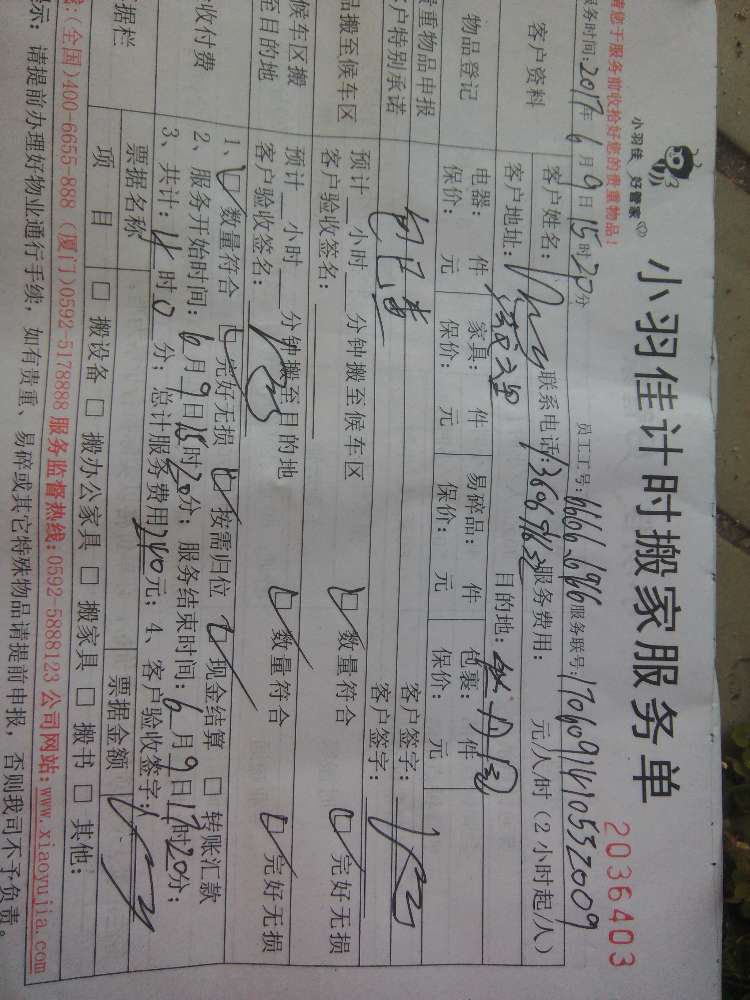 请您于服务前收拾好您的贵重物品!
小羽佳 好管家
小羽佳计时搬家服务单
2036403
服务时间:2017年6月9日15时20分 员工工号:6666.6916 服务联号:1706091410532009
客户资料 客户姓名: 联系电话: 服务费用: 元/人/时(2小时起/人)
客户地址: 目的地:
物品登记 电器: 件 家具: 件 易碎品: 件 包裹: 件
保价: 元 保价: 元 保价: 元 保价: 元
贵重物品申报 客户签字:
客户特别承诺 客户签字:
品搬至候车区 预计__小时__分钟搬至候车区 □数量符合 □完好无损
客户验收签名:
候车区搬至目的地 预计__小时__分钟搬至目的地 □数量符合 □完好无损
客户验收签名:
收付费 1、□数量符合 □完好无损 □按需归位 □现金结算 □转账汇款
2、服务开始时间:6月9日15时20分;服务结束时间:6月9日17时20分;
3、共计:4时0分;总计服务费用240元;4、客户验收签字:
据栏 票据名称 票据金额
项 目 □搬设备 □搬办公家具 □搬家具 □搬书 □其他:
(全国)400-6655-888 (厦门)0592-5178888 服务监督热线:0592-5888123 公司网站:www.xiaoyujia.com
示:请提前办理好物业通行手续,如有贵重、易碎或其它特殊物品请提前申报,否则我司不予负责。